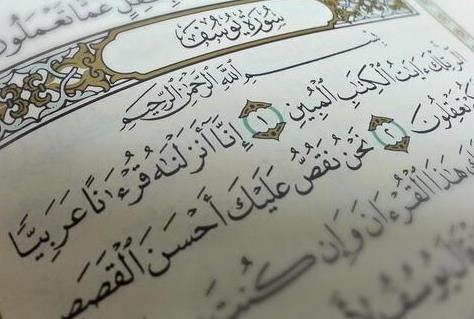 عَمَّا تَعْمَلُونَ
سُورَةُ يُوسُفَ
بِسْمِ اللَّهِ الرَّحْمَٰنِ الرَّحِيمِ
الٓر ۚ تِلْكَ ءَايَٰتُ ٱلْكِتَٰبِ ٱلْمُبِينِ ١ إِنَّآ أَنزَلْنَٰهُ قُرْءَٰنًا عَرَبِيًّا
تَعْقِلُونَ ٢ نَحْنُ نَقُصُّ عَلَيْكَ أَحْسَنَ ٱلْقَصَصِ
هَٰذَا ٱلْقُرْءَانَ وَإِن كُنتَ
يُوسُفُ